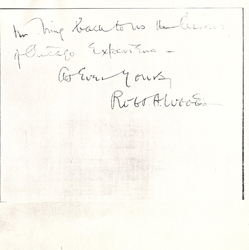 bring back to us the lessons
of Chicago Experience –
As Ever Yours,
Robt A. Woods